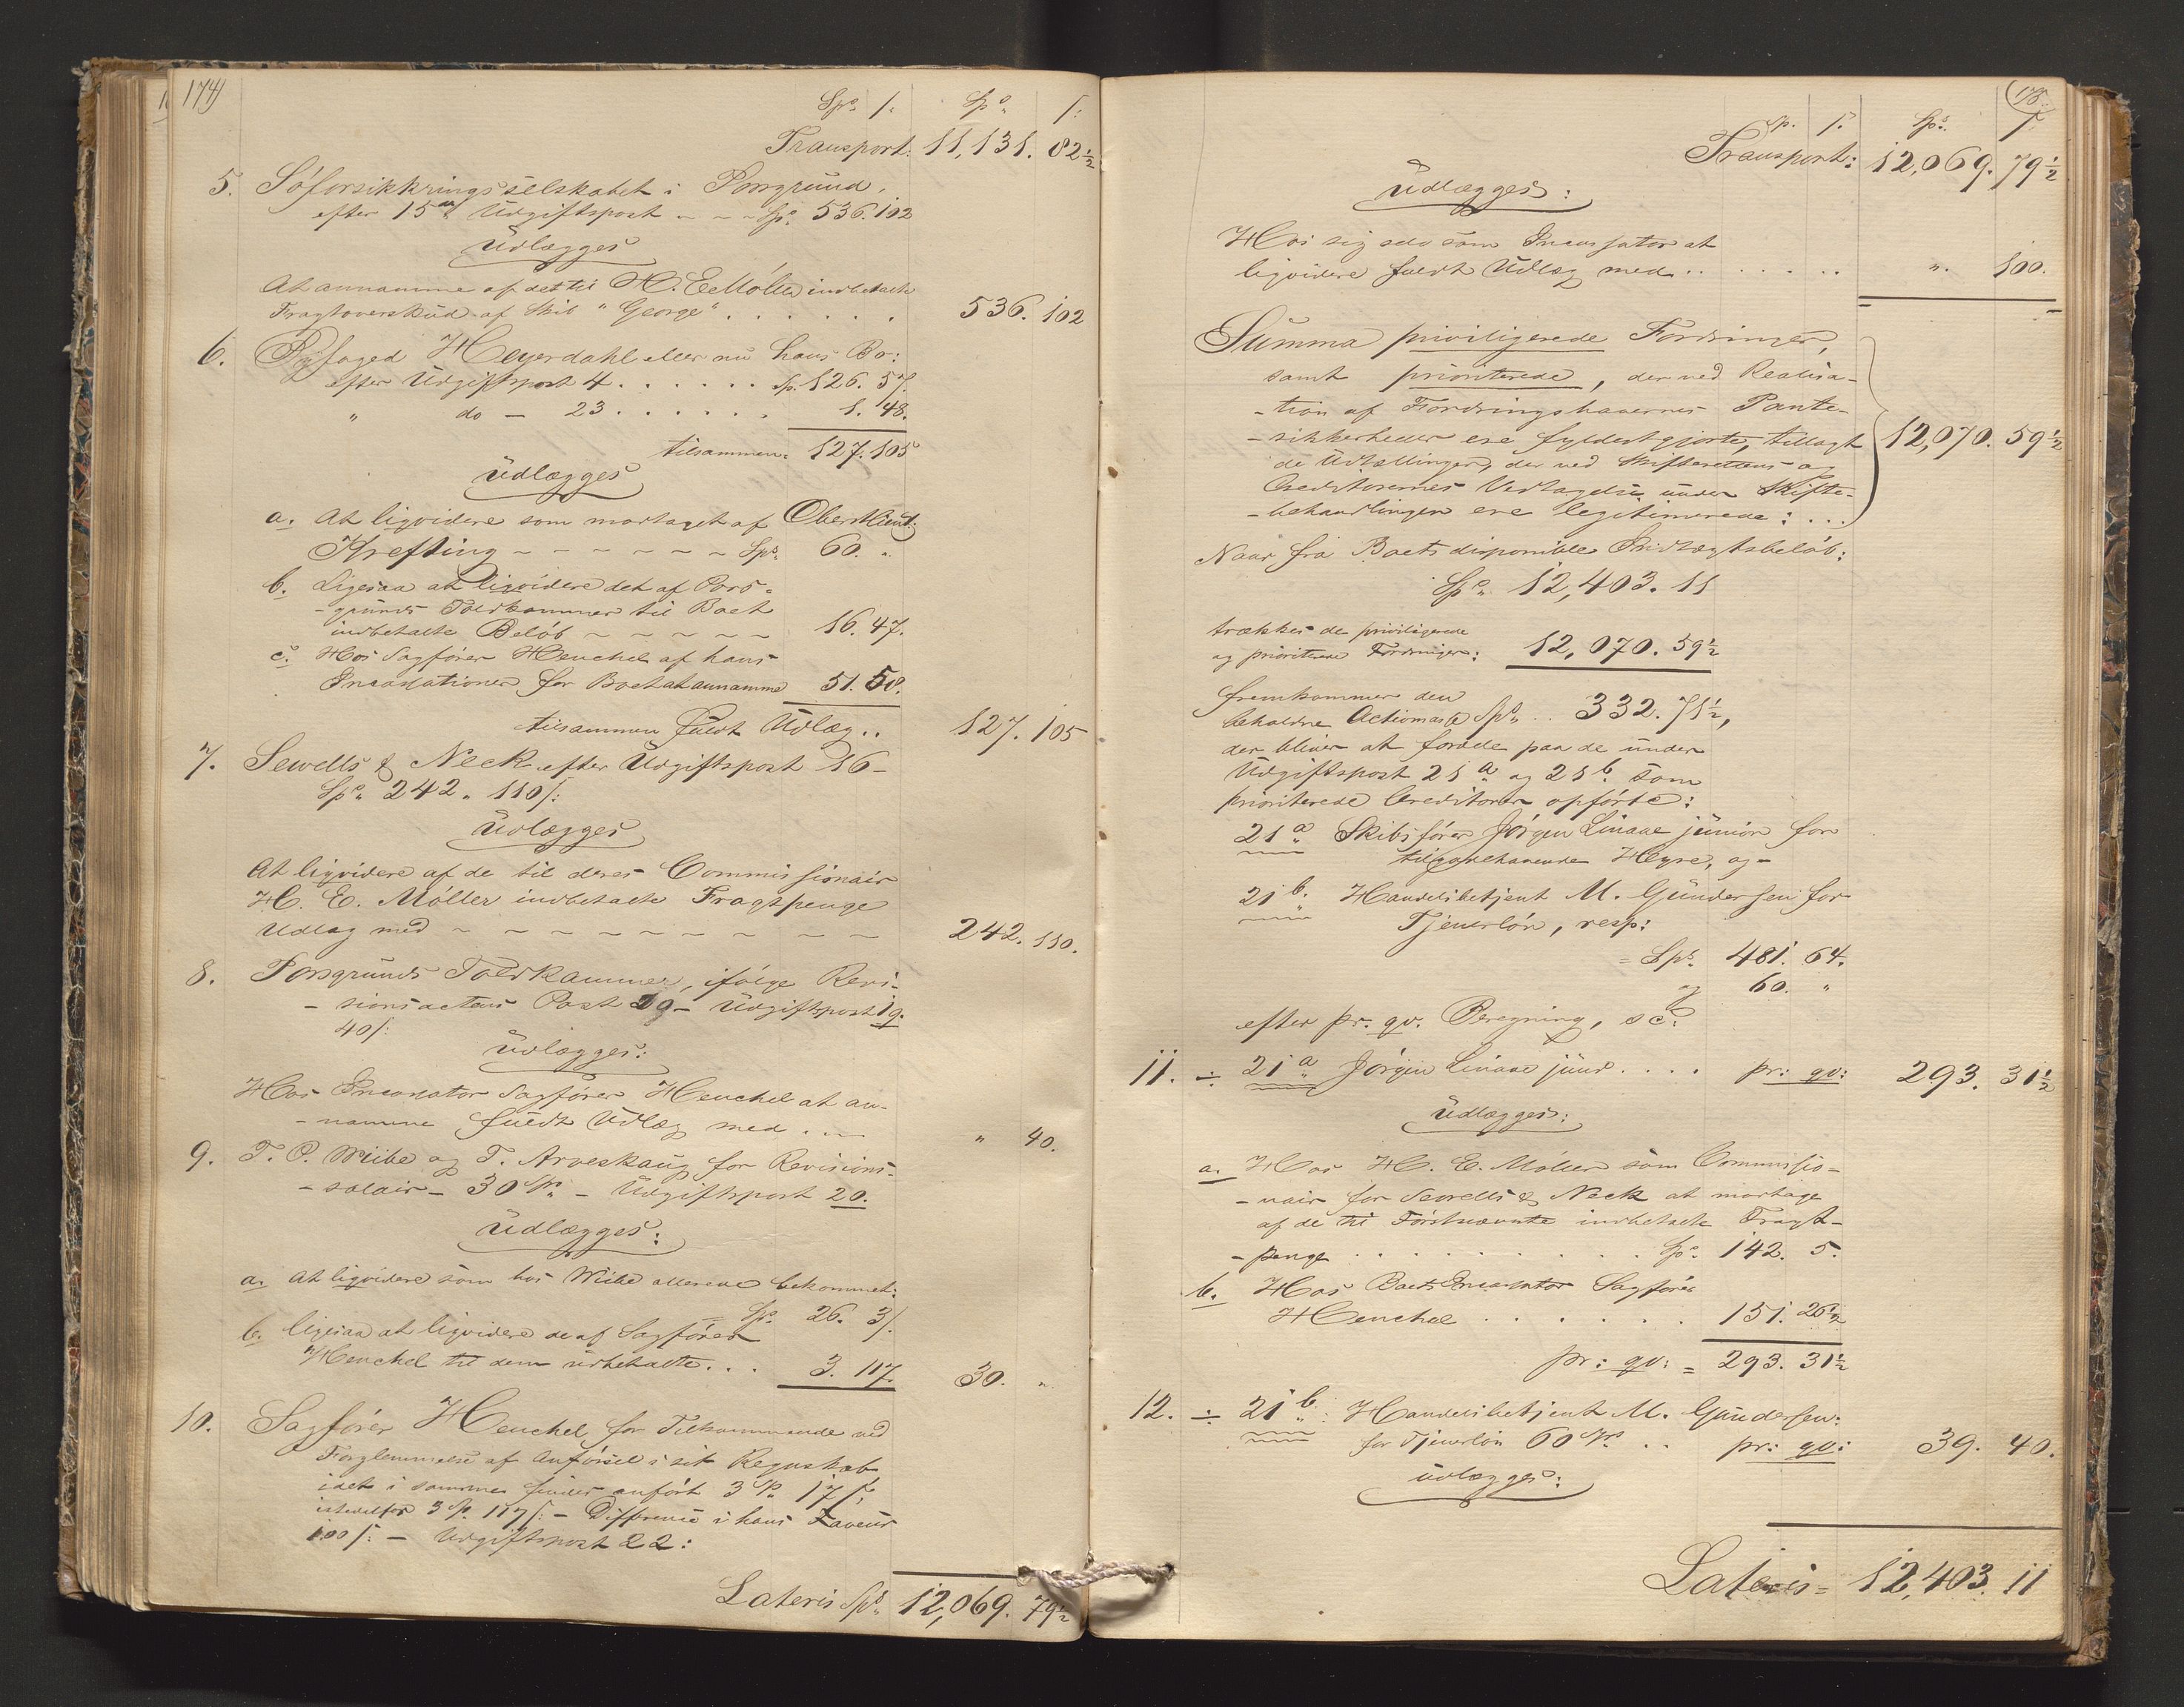 174)
Spd. ſ. Spd. ſ:
Transport: 11,131. 82½
5. Söforsikkringsselskabet i Porsgrund,
efter 15de Udgiftspost - - - Spd. 536.102
Udlægges
At annamme af det til H. E. Möller indbetalte
Fragtoverskud af Skib "George" . . . . . . 536. 102
6. Byfoged Heyerdahl eller nu hans Bo:
efter Udgiftspost 4 . . . . . . Sp. 126. 57.
" do - 23 . . . . . . 1. 48.
tilsammen: 127. 105
Udlægges
a. At liqvidere som modtaget af Oberstlieut:
Krefting - - - - - - - Spd. 60. "
b. Ligesaa at liqvidere det af Pors-
-grunds Toldkammer til Boet
indbetalte Belöb - - - - - 16. 47.
c. Hos Sagförer Heuchel af hans
Incassationer for Boet at annamme 51. 58.
tilsammen fuldt Udlæg . . 127. 105
7. Sewells & Neck efter Udgiftspost 16 -
Spd. 242. 110ſ:
Udlægges
At liqvidere af de til deres Commissionair
H. E. Möller indbetalte Fragtpenge
Udlæg med - - - - - - - - - 242. 110.
8. Porsgrunds Toldkammer, ifölge Revi-
-sionsactens Post 29 - Udgiftspost 19.
40ſ:
Udlægges:
Hos Incassator Sagförer Heuchel at an-
-namme fuldt Udlæg med . . . " 40.
9. T. P. Wiibe og T. Arveskaug for Revisions-
-salair - 30 Spd. - Udgiftspost 20.
Udlægges:
a. At liqvidere som hos Wiibe allerede bekommet:
Spd. 26. 3ſ.
b. ligesaa at liqvidere de af Sagförer
Heuchel til dem udbetalte . . . 3. 117. 30. "
10. Sagförer Heuchel for Tilkommende ved
Forglemmelse af Anförsel i sit Regnskab
idet i samme findes anfört 3 Sp. 17ſ:
istedetfor 3 Sp. 117ſ: - Difference i hans Faveur
100ſ: - Udgiftspost 22:
Lateris Spd. 12,069. 79½
175.
Sp. ſ. Spd. ſ
Transport: 12,069. 79½
Udlægges:
Hos sig selv som Incassator at
liqvidere fuldt Udlæg med . . . . . . . ". 100.
Summa priviligerede Fordringer,
samt prioriterede, der ved Realisa-
-tion af Fordringshavernes Pante-
-sikkerheder ere fyldestgjorte, tillagt
de Udtællinger, der ved Skifterettens og
Creditorernes Vedtagelse under Skifte-
-behandlingen ere legitimerede: . . . 12,070. 59½
Naar fra Boets disponible Indtægtsbelöb:
Spd. 12,403. 11
trækkes de priviligerede
og prioriterede Fordringer: 12,070. 59½
fremkommer den
beholdne Actiomassa Spd. . . 332. 71½,
der bliver at fordele paa de under
Udgiftspost 21a og 21b som
prioriterede Creditorer opförte:
21a Skibsförer Jörgen Linaae junior for
tilgodehavende Hyre, og -
21b. Handelsbetjent M. Gundersen for
Tjenerlön, resp:
= Spd. 481. 64.
og 60. "
efter pr. qv. Beregning, sc:
11. ÷ 21a Jörgen Linaae junr . . . . pr: qv: 293. 31½
Udlægges:
a. Hos H. E. Möller som Commissio-
-nair for Sewells & Neck at modtage
af de til Förstnævnte indbetalte Fragt-
-penge . . . . . . . . . . Spd. 142. 5.
b. Hos Boets Incassator Sagförer
Heuchel . . . . . . . 151. 26½
pr: qv: = 293. 31½
12. ÷ 21b: Handelsbetjent M. Gundersen:
for Tjenerlön 60 Spd. . . pr: qv: 39. 40.
Udlægges:
Lateris = 12,403. 11